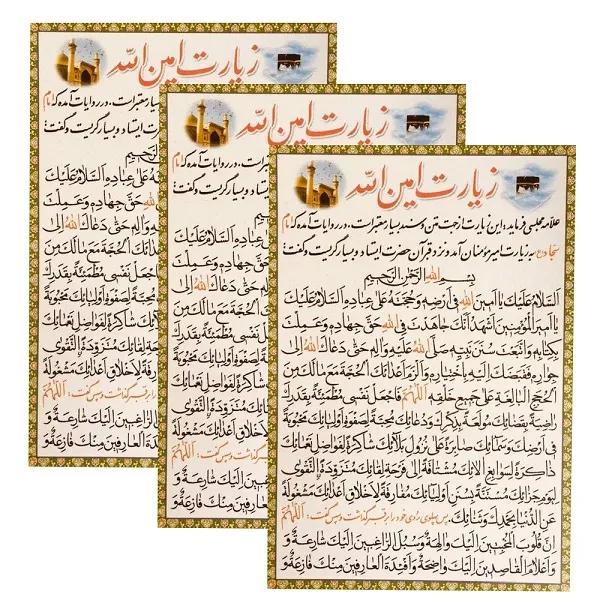 زیارت امین الله
علامه مجلسی فرماید: این زیارت از جهت متن و سند بسیار معتبر است، در روایات آمده که امام
سجاد(ع) به زیارت امیر مؤمنان آمد و نزد قبر آن حضرت ایستاد و بسیار گریست و گفت:
بِسْمِ اللهِ الرَّحْمٰنِ الرَّحیمِ
اَلسَّلامُ عَلَیْکَ یا اَمینَ اللهِ فی اَرْضِهِ وَ حُجَّتَهُ عَلی عِبادِهِ اَلسَّلامُ عَلَیْکَ
یا اَمیرَ الْمُؤْمِنینَ اَشْهَدُ اَنَّکَ جاهَدْتَ فِی اللهِ حَقَّ جِهادِهِ وَ عَمِلْتَ
بِکِتابِهِ وَ اتَّبَعْتَ سُنَنَ نَبِیِّهِ صَلَّی اللهُ عَلَیْهِ وَ الِهِ حَتّی دَعاکَ اللهُ اِلی
جِوارِهِ فَقَبَضَکَ اِلَیْهِ بِاخْتِیارِهِ وَ اَلْزَمَ اَعْدائَکَ الْحُجَّةَ مَعَ مالَکَ مِنَ
الْحُجَجِ الْبالِغَةِ عَلی جَمیعِ خَلْقِهِ اَللّهُمَّ فَاجْعَلْ نَفْسی مُطْمَئِنَّةً بِقَدَرِکَ
راضِیَةً بِقَضائِکَ مُولَعَةً بِذِکْرِکَ وَ دُعائِکَ مُحِبَّةً لِصَفْوَةِ اَوْلِیائِکَ مَحْبُوبَةً
فی اَرْضِکَ وَ سَمائِکَ صابِرَةً عَلی نُزُولِ بَلائِکَ شاکِرَةً لِفَواضِلِ نَعْمائِکَ
ذاکِرَةً لِسَوابِغِ الائِکَ مُشْتاقَةً اِلی فَرْحَةِ لِقائِکَ مُتَزَوِّدَةً التَّقْوی
لِیَوْمِ جَزائِکَ مُسْتَنَّةً بِسُنَنِ اَوْلِیائِکَ مُفارِقَةً لِاَخْلاقِ اَعْدائِکَ مَشْغُولَةً
عَنِ الدُّنْیا بِحَمْدِکَ وَ ثَنائِکَ. پس پهلوی روی خود را بر قبر گذاشت و گفت: اَللّهُمَّ
اِنَّ قُلُوبَ الْمُخْبِتینَ اِلَیْکَ والِهَةٌ وَ سُبُلَ الرّاغِبینَ اِلَیْکَ شارِعَةٌ وَ
وَ اَعْلامَ الْقاصِدینَ اِلَیْکَ واضِحَةٌ وَ اَفْئِدَةَ الْعارِفینَ مِنْکَ فازِعَةٌ وَ